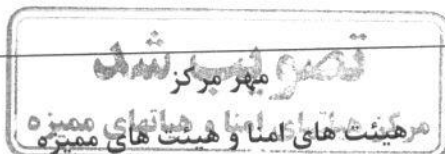 تصویب شد
مهر مرکز
مرکز هیئتهای امنا و هیاتهای ممیزه
هیئت های امنا و هیئت های ممیزه